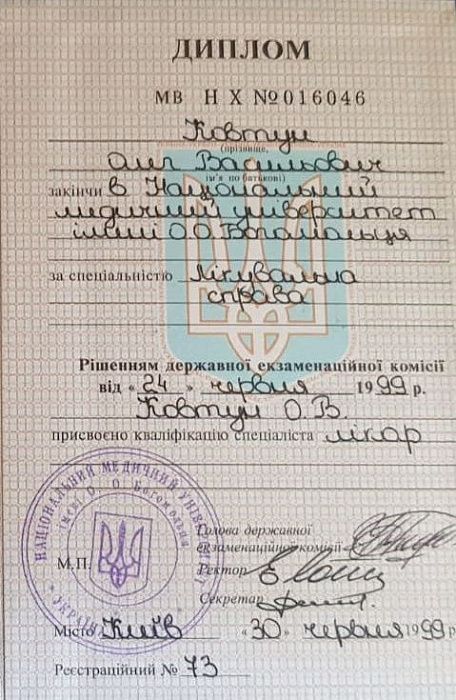 ДИПЛОМ
МВ Н Х №016046
Ковтун
(прізвище,
Олег Васильович
ім'я по батькові)
закінчив Національний
медичний університет
імені О.О.Богомольця
за спеціальністю лікувальна
справа
Рішенням державної екзаменаційної комісії
від «24» червня 1999 р.
Ковтун О.В.
присвоєно кваліфікацію спеціаліста лікар
НАЦІОНАЛЬНИЙ МЕДИЧНИЙ
імені О. О. Богомольця
УКРАЇНА
М.П.
Голова державної
екзаменаційної комісії
Ректор
Секретар
Місто Київ «30» червня 1999 р.
Реєстраційний № 73